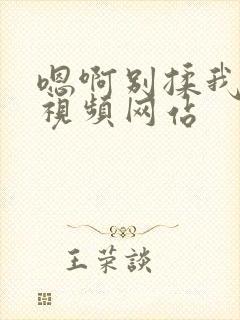 嗯啊别揉我
视频网站
王荣谈